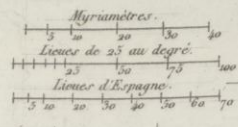 Myriamètres.
5 10 20 30 40
Lieues de 25 au degré.
25 50 75 100
Lieues d'Espagne.
5 10 20 30 40 50 60 70